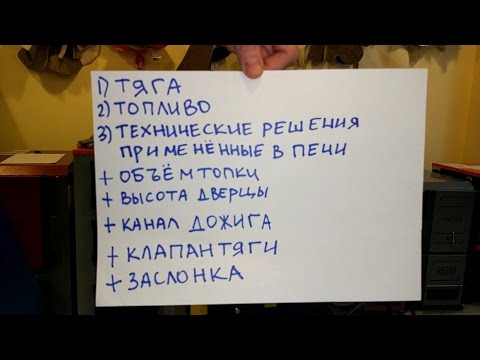 1) ТЯГА
2) ТОПЛИВО
3) ТЕХНИЧЕСКИЕ РЕШЕНИЯ
ПРИМЕНЁННЫЕ В ПЕЧИ
+ ОБЪЁМ ТОПКИ
+ ВЫСОТА ДВЕРЦЫ
+ КАНАЛ ДОЖИГА
+ КЛАПАН ТЯГИ
+ ЗАСЛОНКА